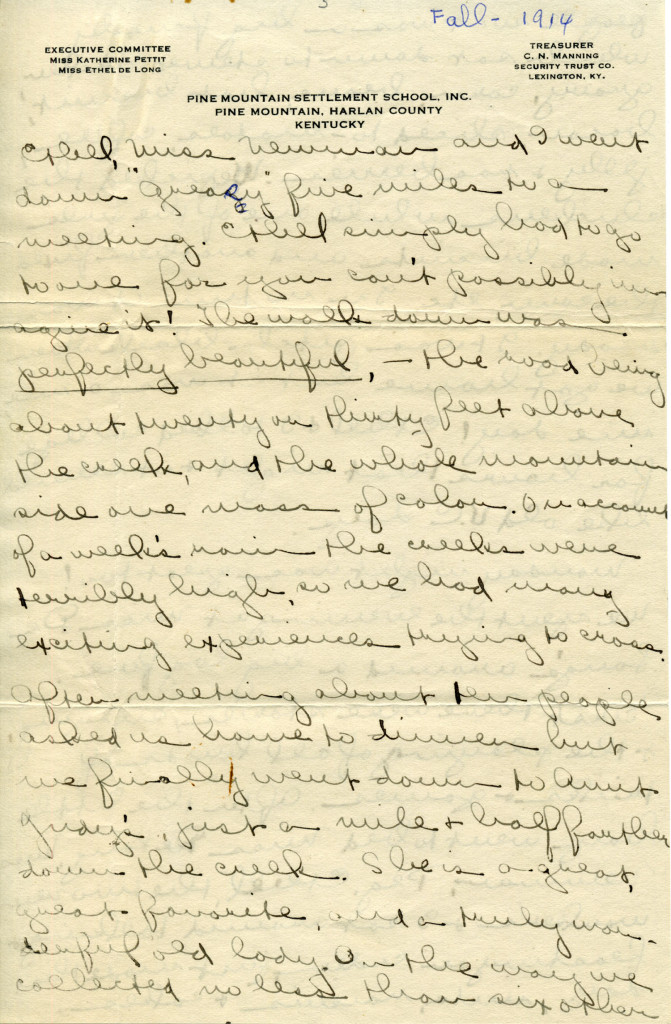 Fall - 1914
EXECUTIVE COMMITTEE
MISS KATHERINE PETTIT
MISS ETHEL DE LONG
TREASURER
C. N. MANNING
SECURITY TRUST CO.
LEXINGTON, KY.
PINE MOUNTAIN SETTLEMENT SCHOOL, INC.
PINE MOUNTAIN, HARLAN COUNTY
KENTUCKY
Ethel, Miss Newman and I went
down "Greasy" five miles to a
meeting. Ethel simply had to go
to one for you can't possibly im-
agine it! The walk down was
perfectly beautiful, - the road being
about twenty or thirty feet above
the creek, and the whole mountain
side one mass of color. On account
of a week's rain the creeks were
terribly high, so we had many
exciting experiences trying to cross.
After meeting about ten people
asked us home to dinner but
we finally went down to Aunt
Judy's, just a mile + half farther
down the creek. She is a great,
great favorite, and a truly won-
derful old lady. On the way we
collected no less than six other